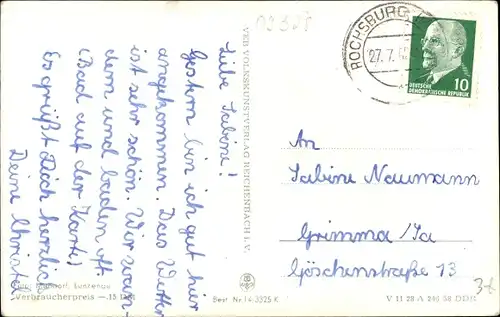 02328
Liebe Sabine!
Gestern bin ich gut hier
angekommen. Das Wetter
ist sehr schön. Wir wan-
dern und baden oft
(Bad auf der Karte)
Es grüßt Dich herzlich
Deine Christel
VEB VOLKSKUNSTVERLAG REICHENBACH I. V.
ROCHSBURG
27.7.6
10
DEUTSCHE
DEMOKRATISCHE REPUBLIK
An
Sabine Naumann
Grimma/Sa
Göschenstraße 13
Lunzenau
Verbraucherpreis —.15 DM
Best. Nr. 14-3325 K
V 11 28 A 246 58 DDR